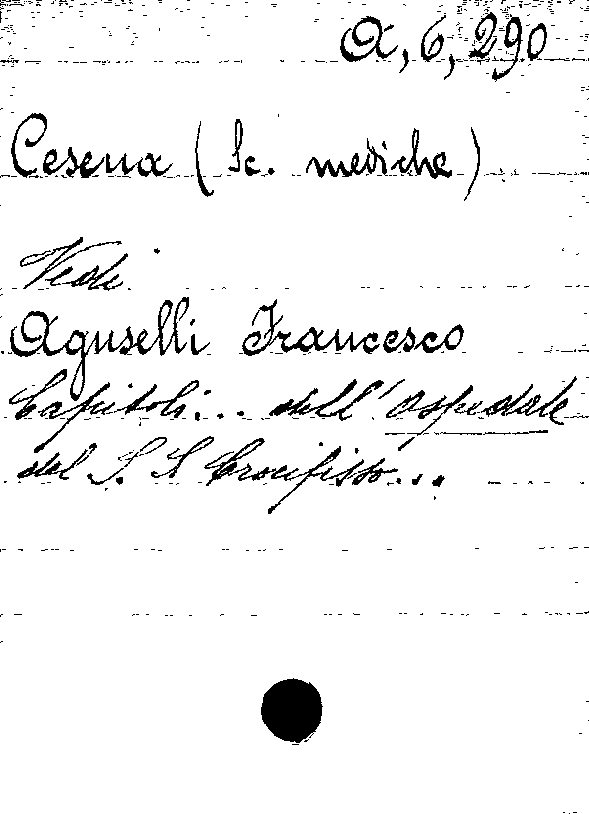 A, 6, 290
Cesena (Sc. mediche)
Vedi
Aguselli Francesco
Capitoli... dell'ospedale
del S. S Crocifisso...